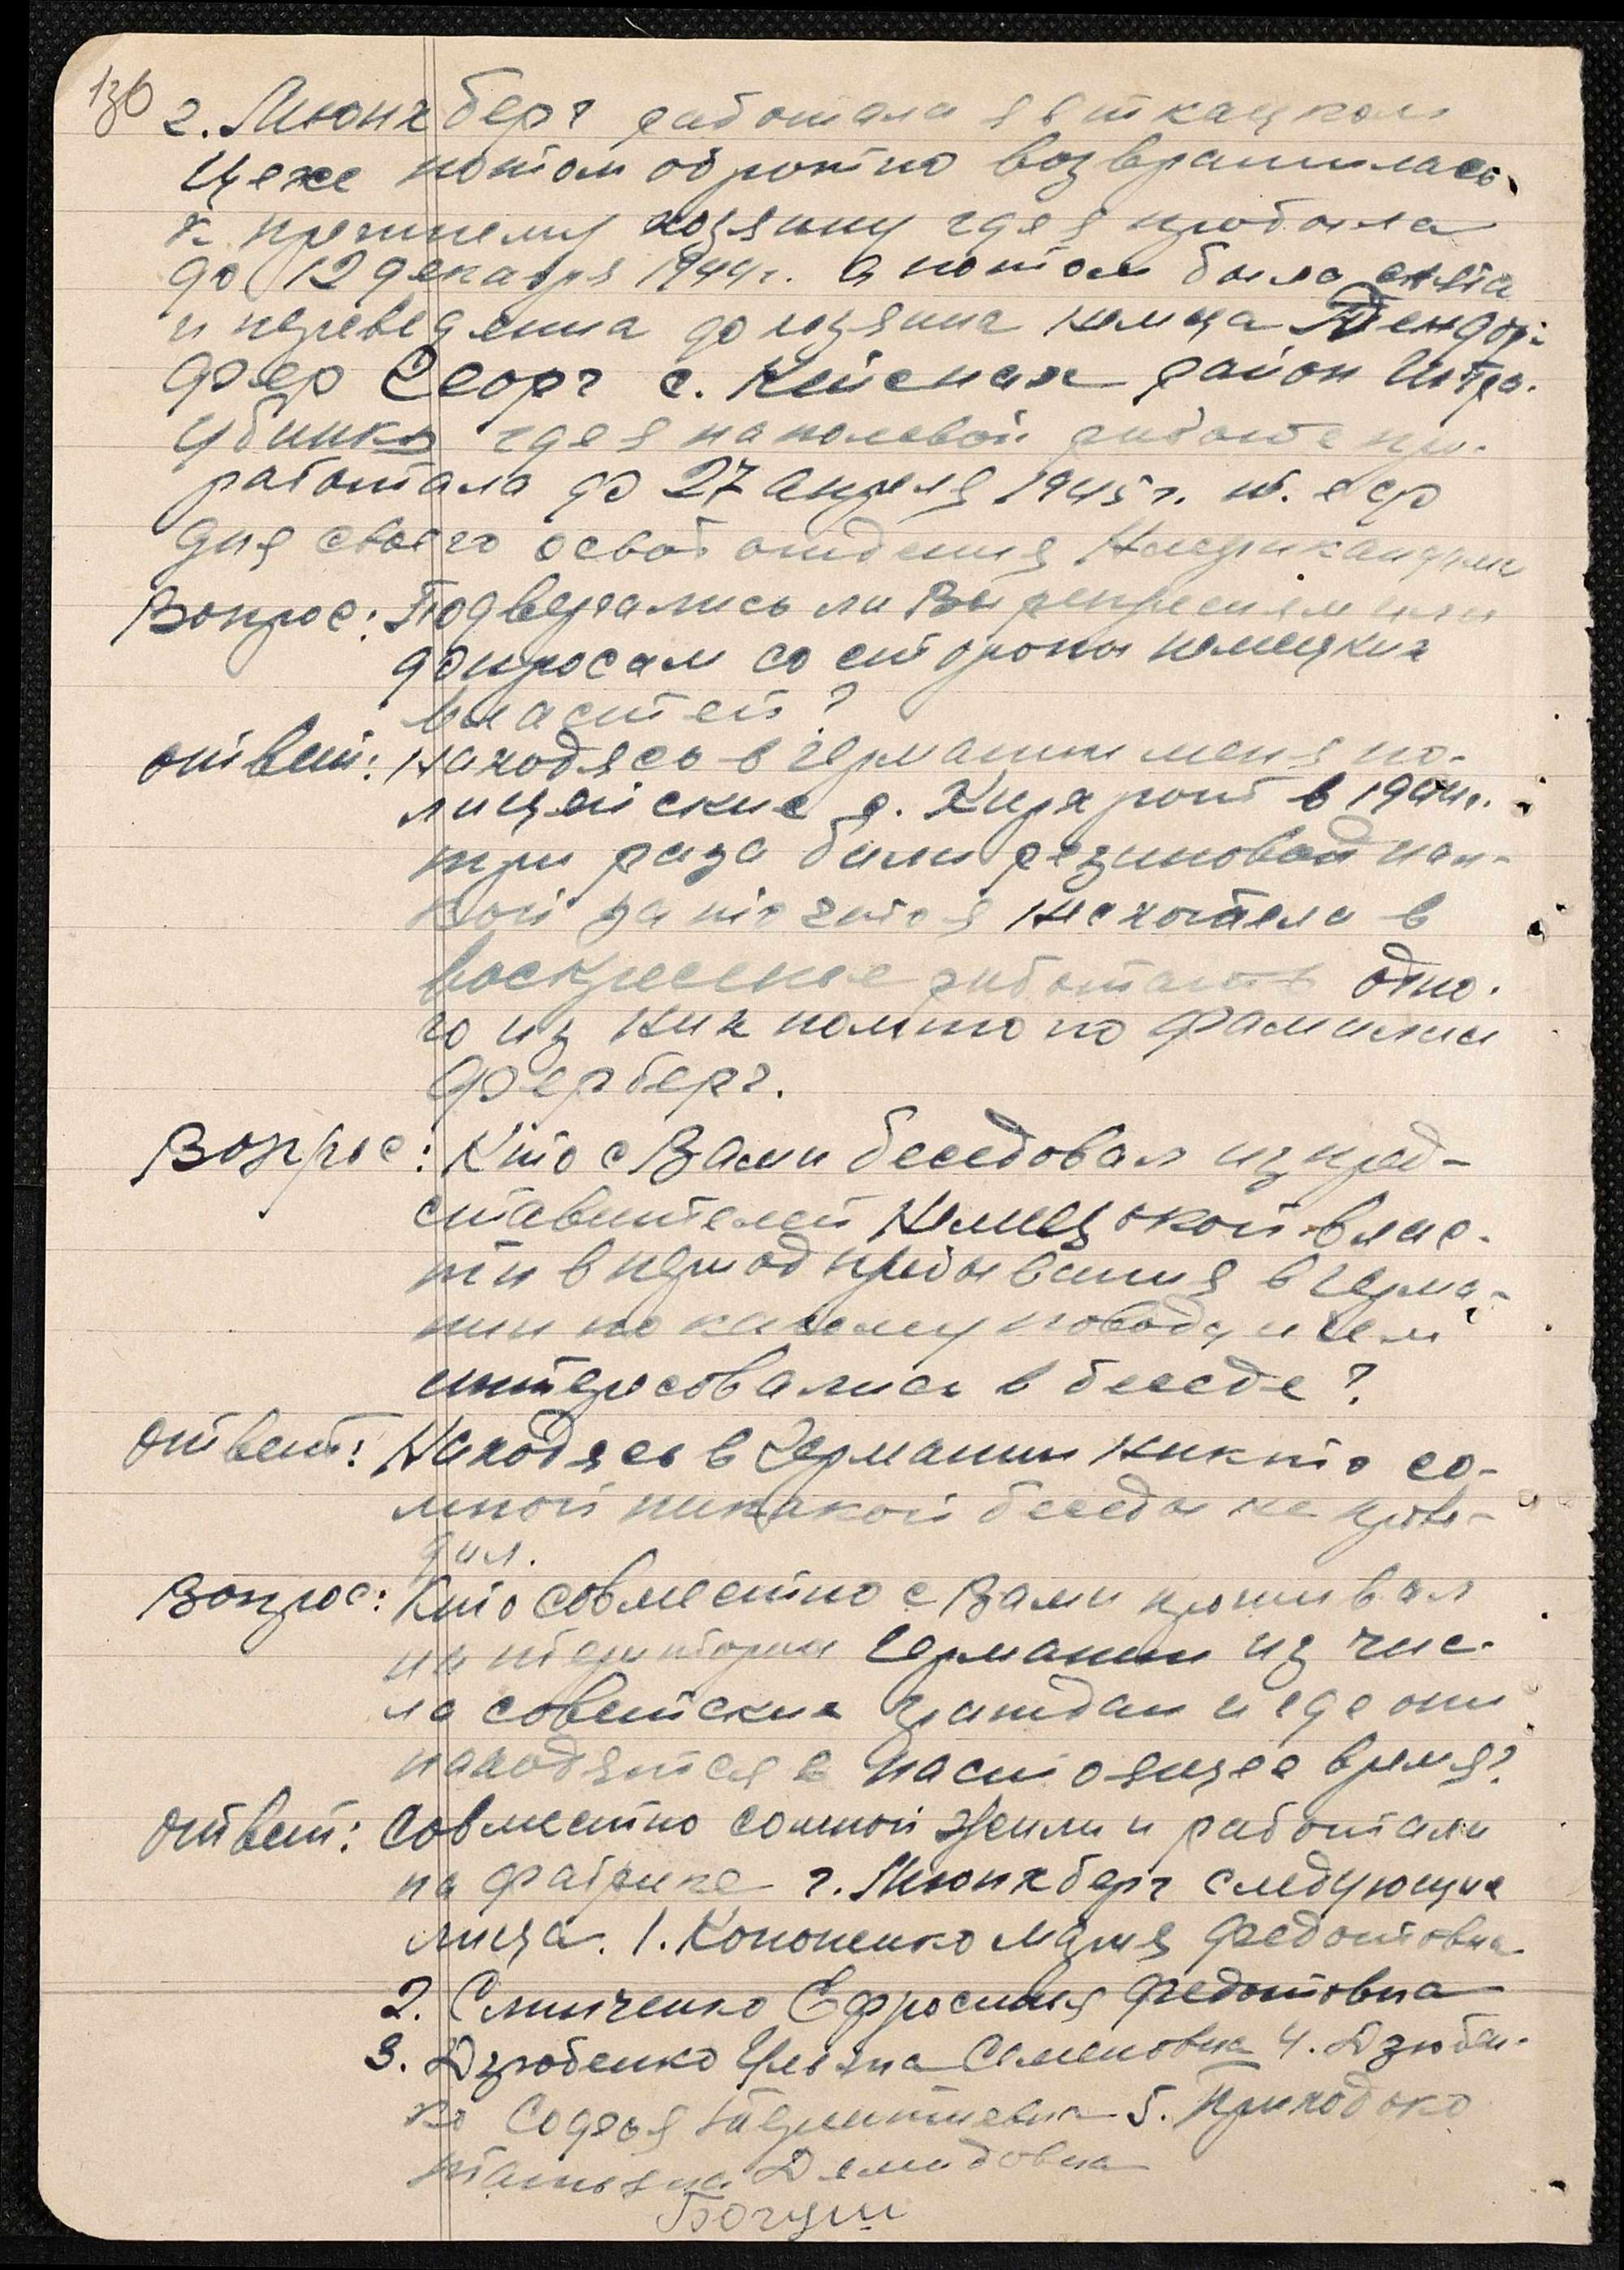 136
г. Мюнхберг работала я в ткацком
цехе потом обратно возвратилась
к прежнему хозяину где я пробыла
до 12 декабря 1944г. а потом была снята
и переведенна до хозяина немца Дендор-
фер Георг с. Кийсмах район Штра-
убинк где я на полевой работе про-
работала до 27 апреля 1945 г. т. е до
дня своего освобождения Американцами
Вопрос: Подвергались ли Вы репресиям или
допросам со стороны немецких
властей?
ответ: находясь в германии меня по-
лицейские д. в 1944г.
три раза били резиновой пал-
кой за то что я не хотела в
воскресенье работать одно-
го из них помню по фамилии
Ферберг.
Вопрос: Кто с Вами беседовал из пред-
ставителей Немецкой влас-
ти в период пребывания в Герма-
нии по какому поводу и чем
интересовались в беседе?
ответ: Находясь в Германии никто со-
мной никакой беседы не прово-
дил.
Вопрос: Кто совместно с Вами проживал
на територии Германии из чис-
ла советских граждан и где они
находятся в настоящее время?
ответ: Совместно сомной жили и работали
на фабрике г. Мюнхберг следующие
лица. 1. Кононенко Мария Федотовна
2. Слинченко Ефросиния Федотовна
3. Дзюбенко Ульяна Семеновна 4. Дзюбен-
ко 5. Приходько
татьяна Демидовна
Богуш